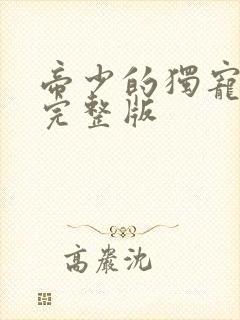 帝少的獨寵
完整版
高嚴沈